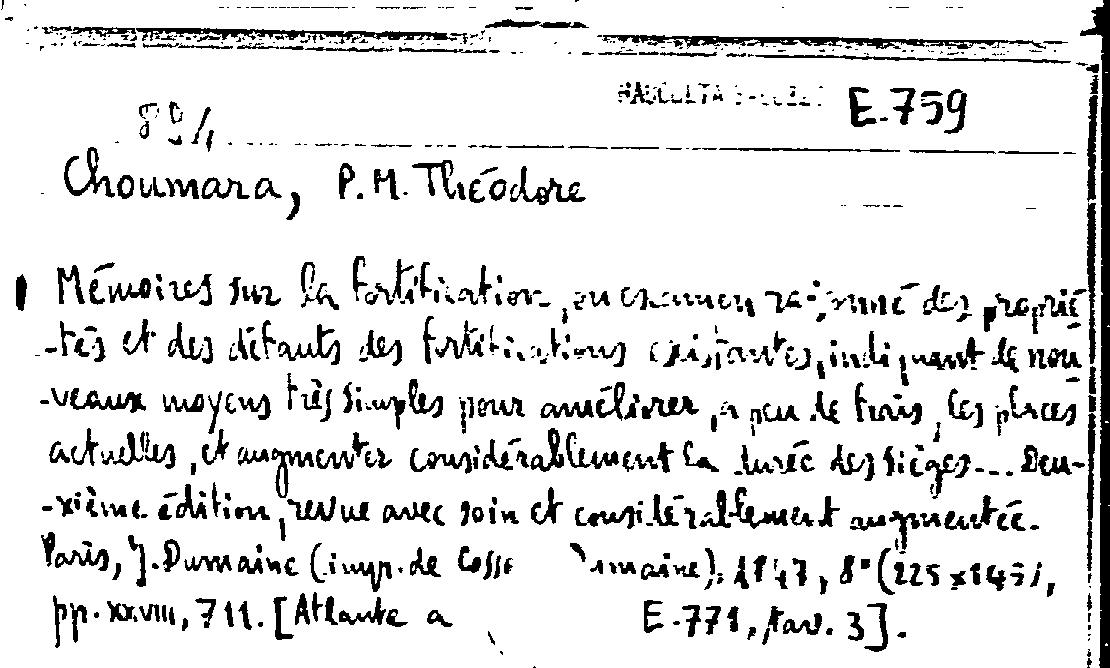 E.759
894
Choumara, P.M. Théodore
Mémoires sur la fortification, ou examen raisonné des proprié-
-tés et des défauts des fortifications existantes, indiquant de nou-
-veaux moyens très simples pour améliorer, a peu de frais, les places
actuelles, et augmenter considérablement la durée des sièges... Deu-
-xième édition, revue avec soin et considérablement augmentée.
Paris, J. Dumaine (impr. de Cosse Dumaine), 1847, 8° (225x145),
pp. XXVIII, 711. [Atlante a E.771, tav. 3].